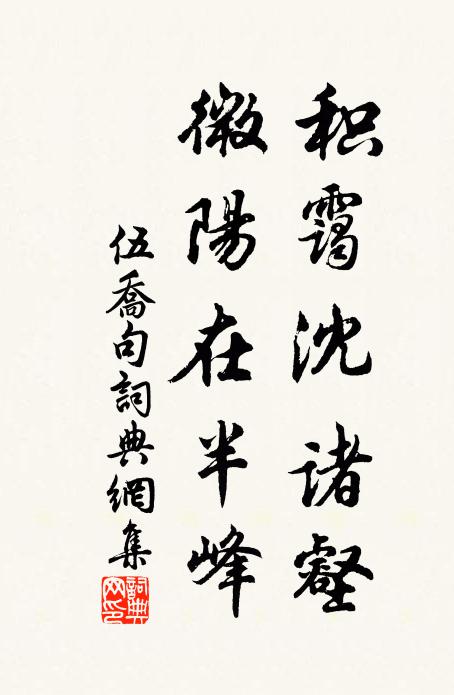 积靄沈诸壑
微陽在半峰
伍喬句詞典網集
詞典网印